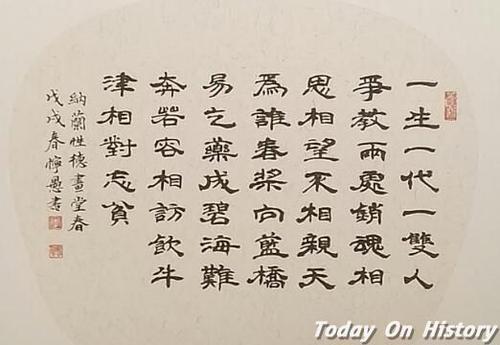 一生一代一雙人
爭教兩處銷魂相
思相望不相親天
為誰春槳向藍橋
易乞藥成碧海難
奔若容相訪飲牛
津相對忘貧
納蘭性德畫堂春
戊戌春愚書
Today On History